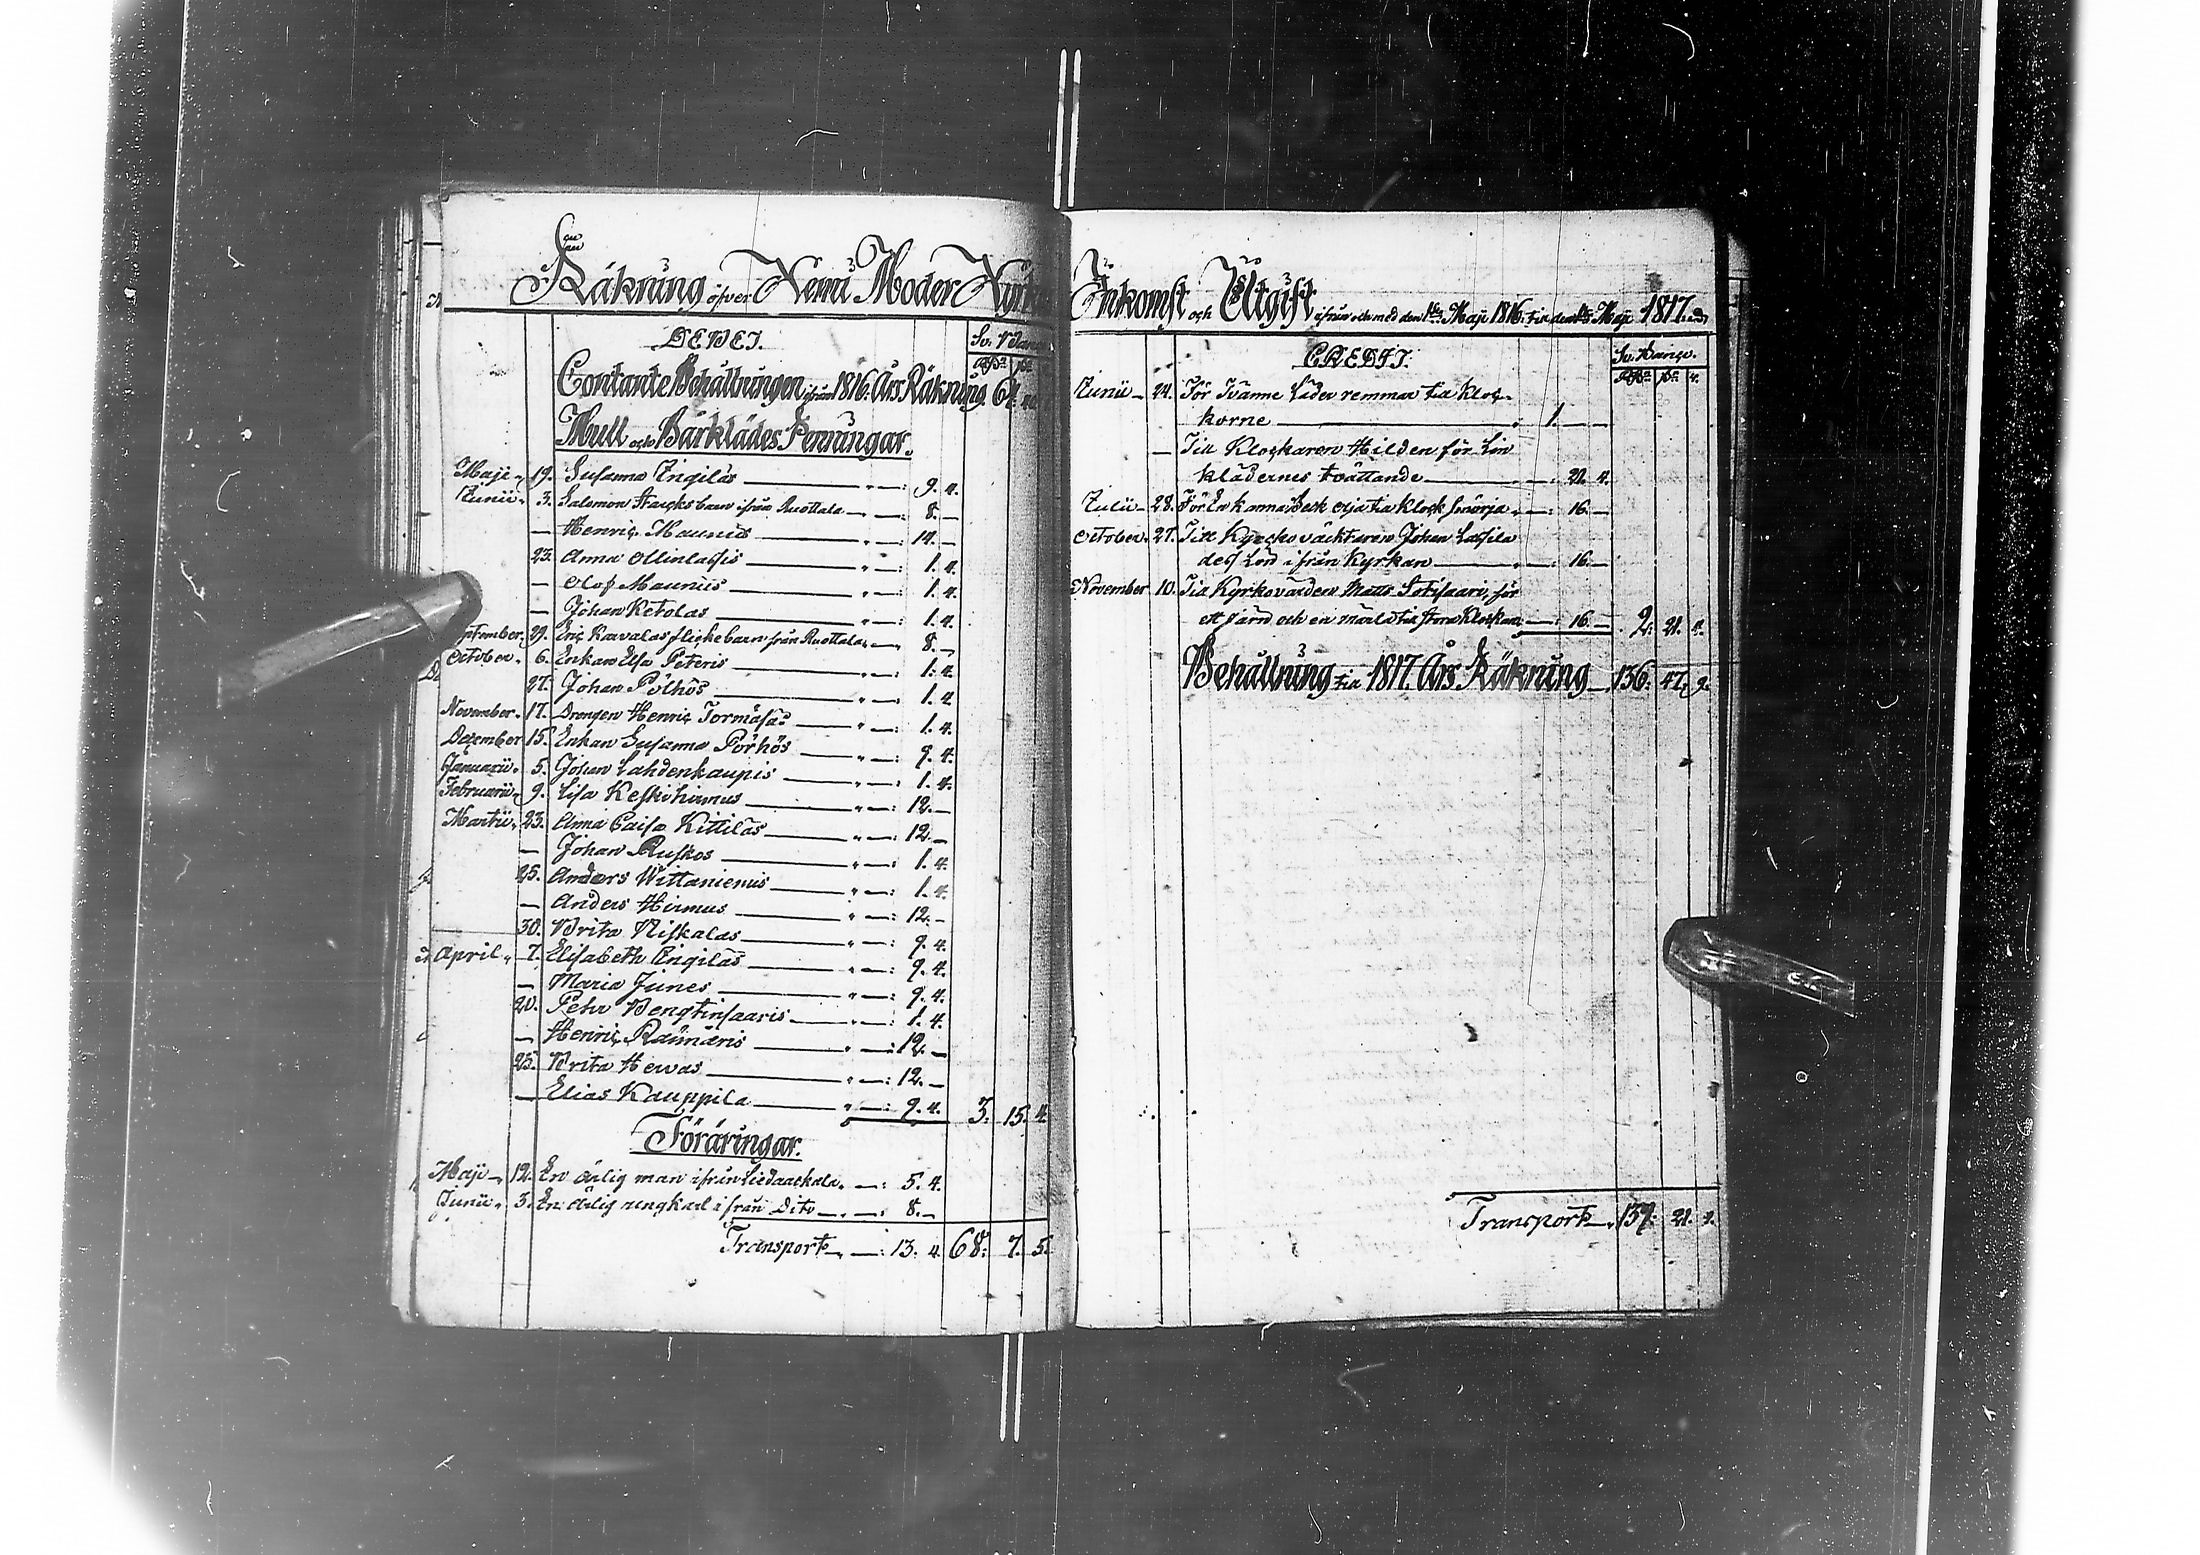 Räkning öfver Kemi Moder Kyrk
DEBET.
Sv. Banco
Contante Behållningen ifrån 1816. Års Räkning 64.
Mull och Bårklädes Penningar.
Maji 19. Susanna Zingilas — 9. 4.
Junii 3. Salomon Starcks barn ifrån Ruottala — 8. —
— Henric Maunus — 14. —
23. Anna Ollinlassis — 1. 4.
— Olof Maunus — 1. 4.
— Johan Ketolas — 1. 4.
ptember. 29. Eric Karvalas flickebarn från Ruottala — 8. —
October. 6. Enkan Elsa Peteris — 1. 4.
27. Johan Pölhös — 1. 4.
November. 17. Drengen Henric Tormäsas — 1. 4.
December 15. Enkan Susanna Pörhös — 9. 4.
Januarii. 5. Johan Lahdenkaupis — 1. 4.
Februarii 9. Lisa Keskihirmus — 12. —
Martii. 23. Anna Caisa Kittiläs — 12. —
— Johan Ruskos — 1. 4.
25. Anders Wittaniemis — 1. 4.
— Anders Hirmus — 12. —
30. Brita Niskalas — 9. 4.
April. 7. Elisabeth Zingilas — 9. 4.
— Maria Junes — 9. 4.
20. Pehr Bengtinsaaris — 1. 4.
— Henric Raumaris — 12. —
25. Brita Hervas — 12. —
— Elias Kauppila — 9. 4. 3. 15. 4.
Föräringar.
Maji 12. En ärlig man ifrån Liedaackala — 5. 4.
Junii 3. En ärlig ungkarl ifrån Dito — 8. —
Transport — 13. 4. 68. 7. 5.
Inkomst och Utgift ifrån och med den 1ste Maji 1816. till den 1ste Maji 1817.
CREDIT.
Sv. Banco.
Junii 24. För Tvänne Läder remmar till Kloc-
korne — 1. —
— Till Klockaren Hilden för Lin
klädernes tvättande — 21. 4.
Julii 28. För En kanna Beck olja till Klock smörja — 16. —
October. 27. Till Kyrckoväcktaren Johan Lassila
des Lön ifrån Kyrkan — 16. —
November 10. Till Kyrkovärden Matts Sotisaari, för
ett järn och en märla till stora Klockan — 16. — 2. 21. 4.
Behållning till 1817. Års Räkning — 136. 47. 9.
Transport — 139. 21. 1.